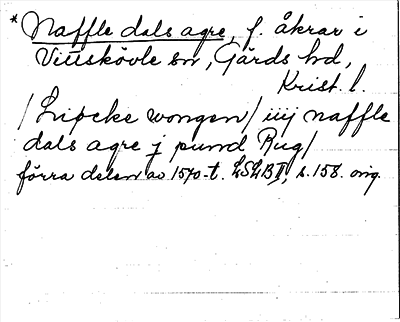 * Naffle dals agre, f. åkrar i
Vittskövle sn, Gärds hd,
Krist. l.
/Lipcke wongen/ iiij naffle
dals agre j pund Rug/
förra delen av 1570-t. LSLB II, s. 158. orig.